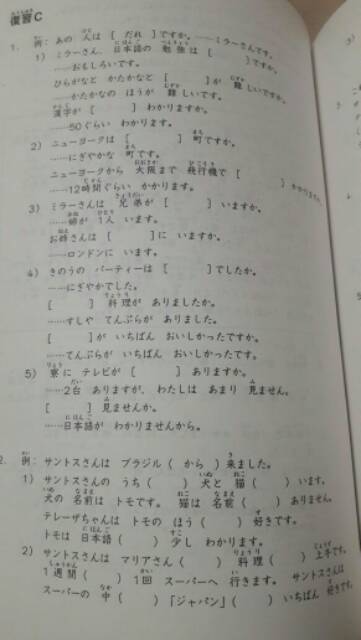 復習C
1. 例：あの 人は [ だれ ] ですか。……ミラーさんです。
1) ミラーさん、日本語の 勉強は [ ] ですか。
……おもしろいです。
ひらがなと かたかなと [ ] が 難しいですか。
……かたかなの ほうが 難しいです。
漢字が [ ] わかりますか。
……50ぐらい わかります。
2) ニューヨークは [ ] 町ですか。
……にぎやかな 町です。
ニューヨークから 大阪まで 飛行機で [ ] かかりますか。
……12時間ぐらい かかります。
3) ミラーさんは 兄弟が [ ] いますか。
……姉が 1人 います。
お姉さんは [ ] に いますか。
……ロンドンに います。
4) きのうの パーティーは [ ] でしたか。
……にぎやかでした。
[ ] 料理が ありましたか。
……すしや てんぷらが ありました。
[ ] が いちばん おいしかったですか。
……てんぷらが いちばん おいしかったです。
5) 寮に テレビが [ ] ありますか。
……2台 ありますが、わたしは あまり 見ません。
[ ] 見ませんか。
……日本語が わかりませんから。
2. 例：サントスさんは ブラジル（ から ）来ました。
1) サントスさんの うち（ ）犬と 猫（ ）います。
犬の 名前は トモです。猫は 名前（ ）ありません。
テレーザちゃんは トモの ほう（ ）好きです。
トモは 日本語（ ）少し わかります。
2) サントスさんは マリアさん（ ）料理（ ）上手です。
1週間（ ）1回 スーパーへ 行きます。サントスさんは
スーパーの 中（ ）「ジャパン」（ ）いちばん 好きです。